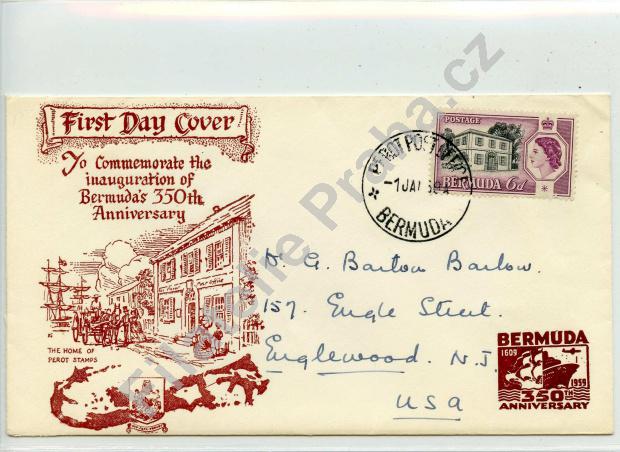 First Day Cover
To Commemorate the
inauguration of
Bermuda's 350th
Anniversary
Post Office
THE HOME OF
PEROT STAMPS
PEROT POST OFFICE
-1 JAN 59
BERMUDA
POSTAGE
BERMUDA 6d
G. Barton Barlow.
157. Engle Street.
Englewood. N.J.
USA
BERMUDA
1609
1959
350TH
ANNIVERSARY
Filatelie Praha.cz